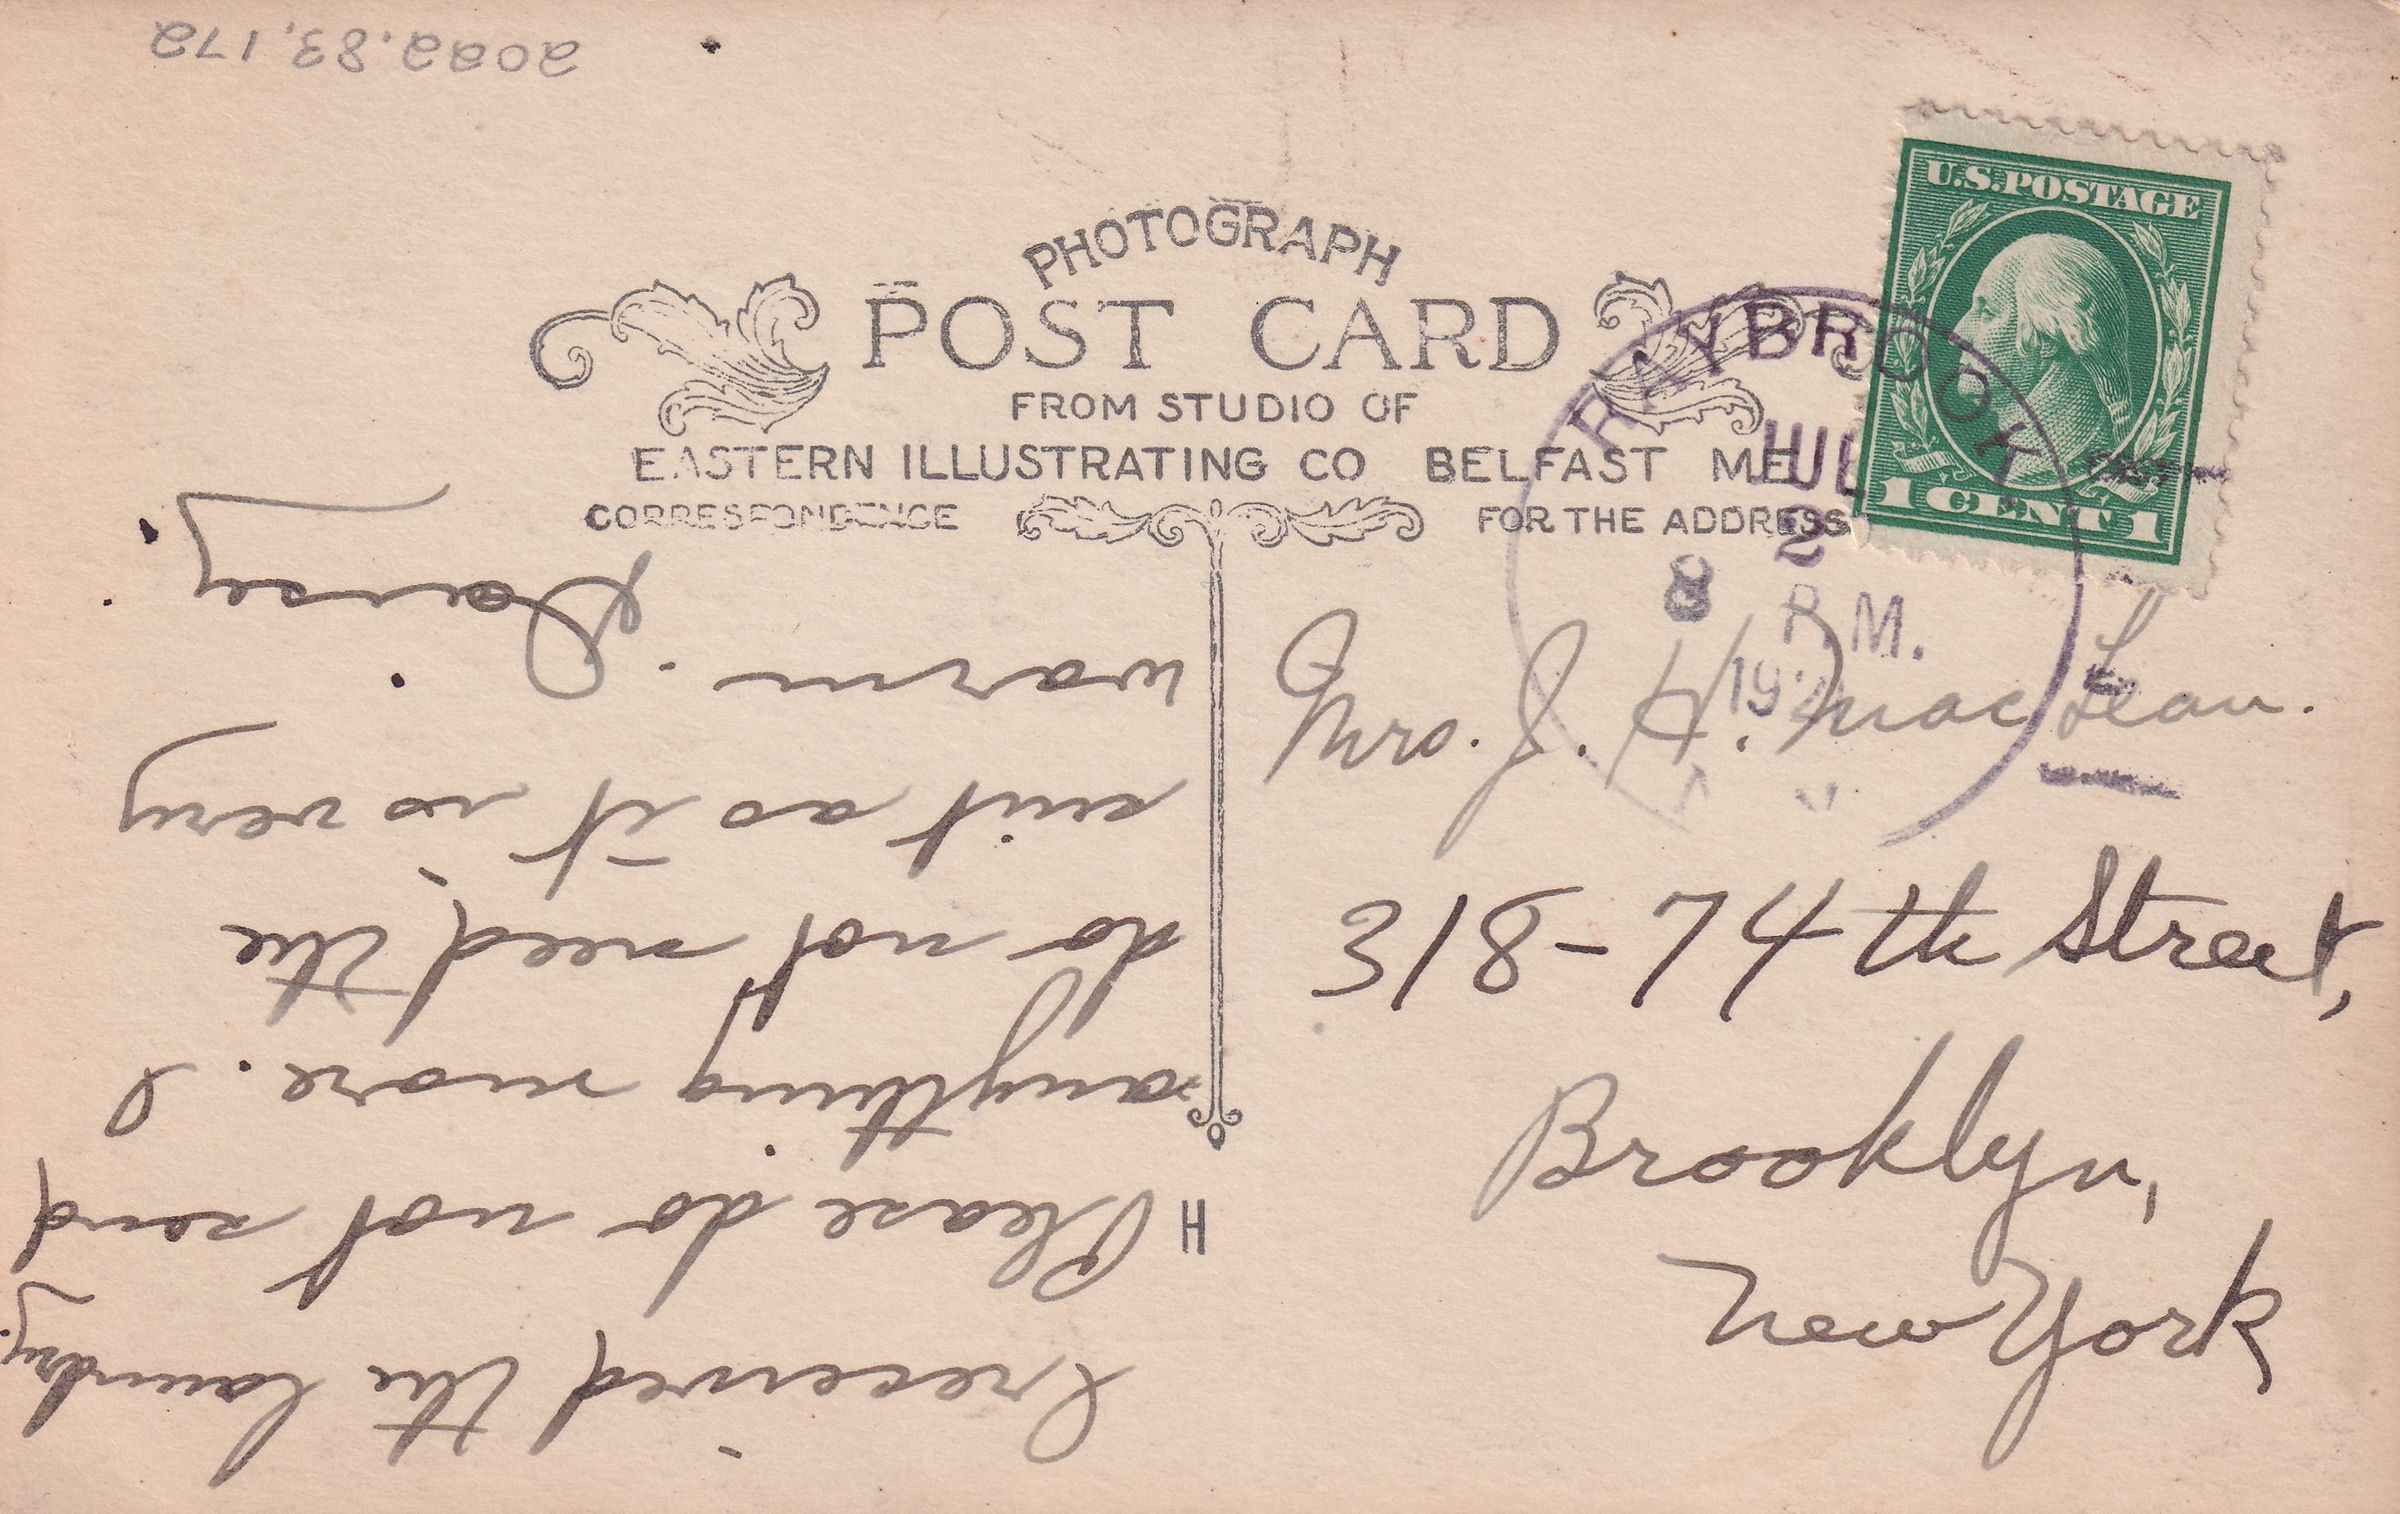 2022.83.172
PHOTOGRAPH
POST CARD
FROM STUDIO OF
EASTERN ILLUSTRATING CO BELFAST ME
CORRESPONDENCE
FOR THE ADDRESS
U.S.POSTAGE
1 CENT 1
RAYBROOK
JUL
2
8 P.M.
Mrs. J. H. MacLean.
318-74th Street,
Brooklyn,
New York
H
I received the laundry.
Please do not send
anything more. I
do not need the
suit as it is very
warm.